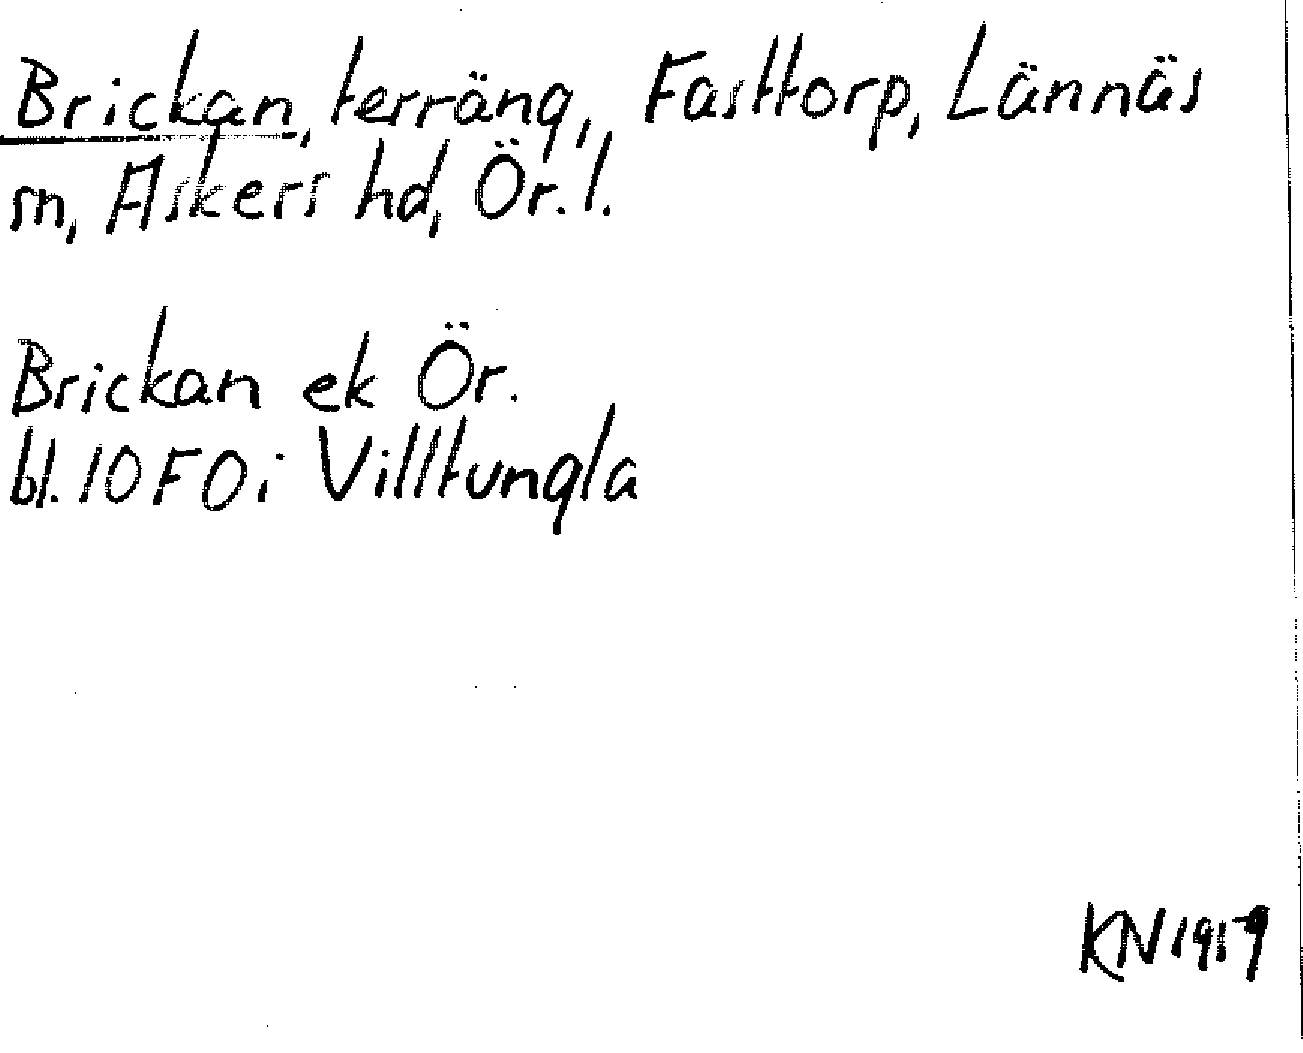 Brickan, terräng, Fasttorp, Lännäs
sn, Askers hd, Ör. l.
Brickan ek Ör.
bl. 10 F 0 i Villtungla